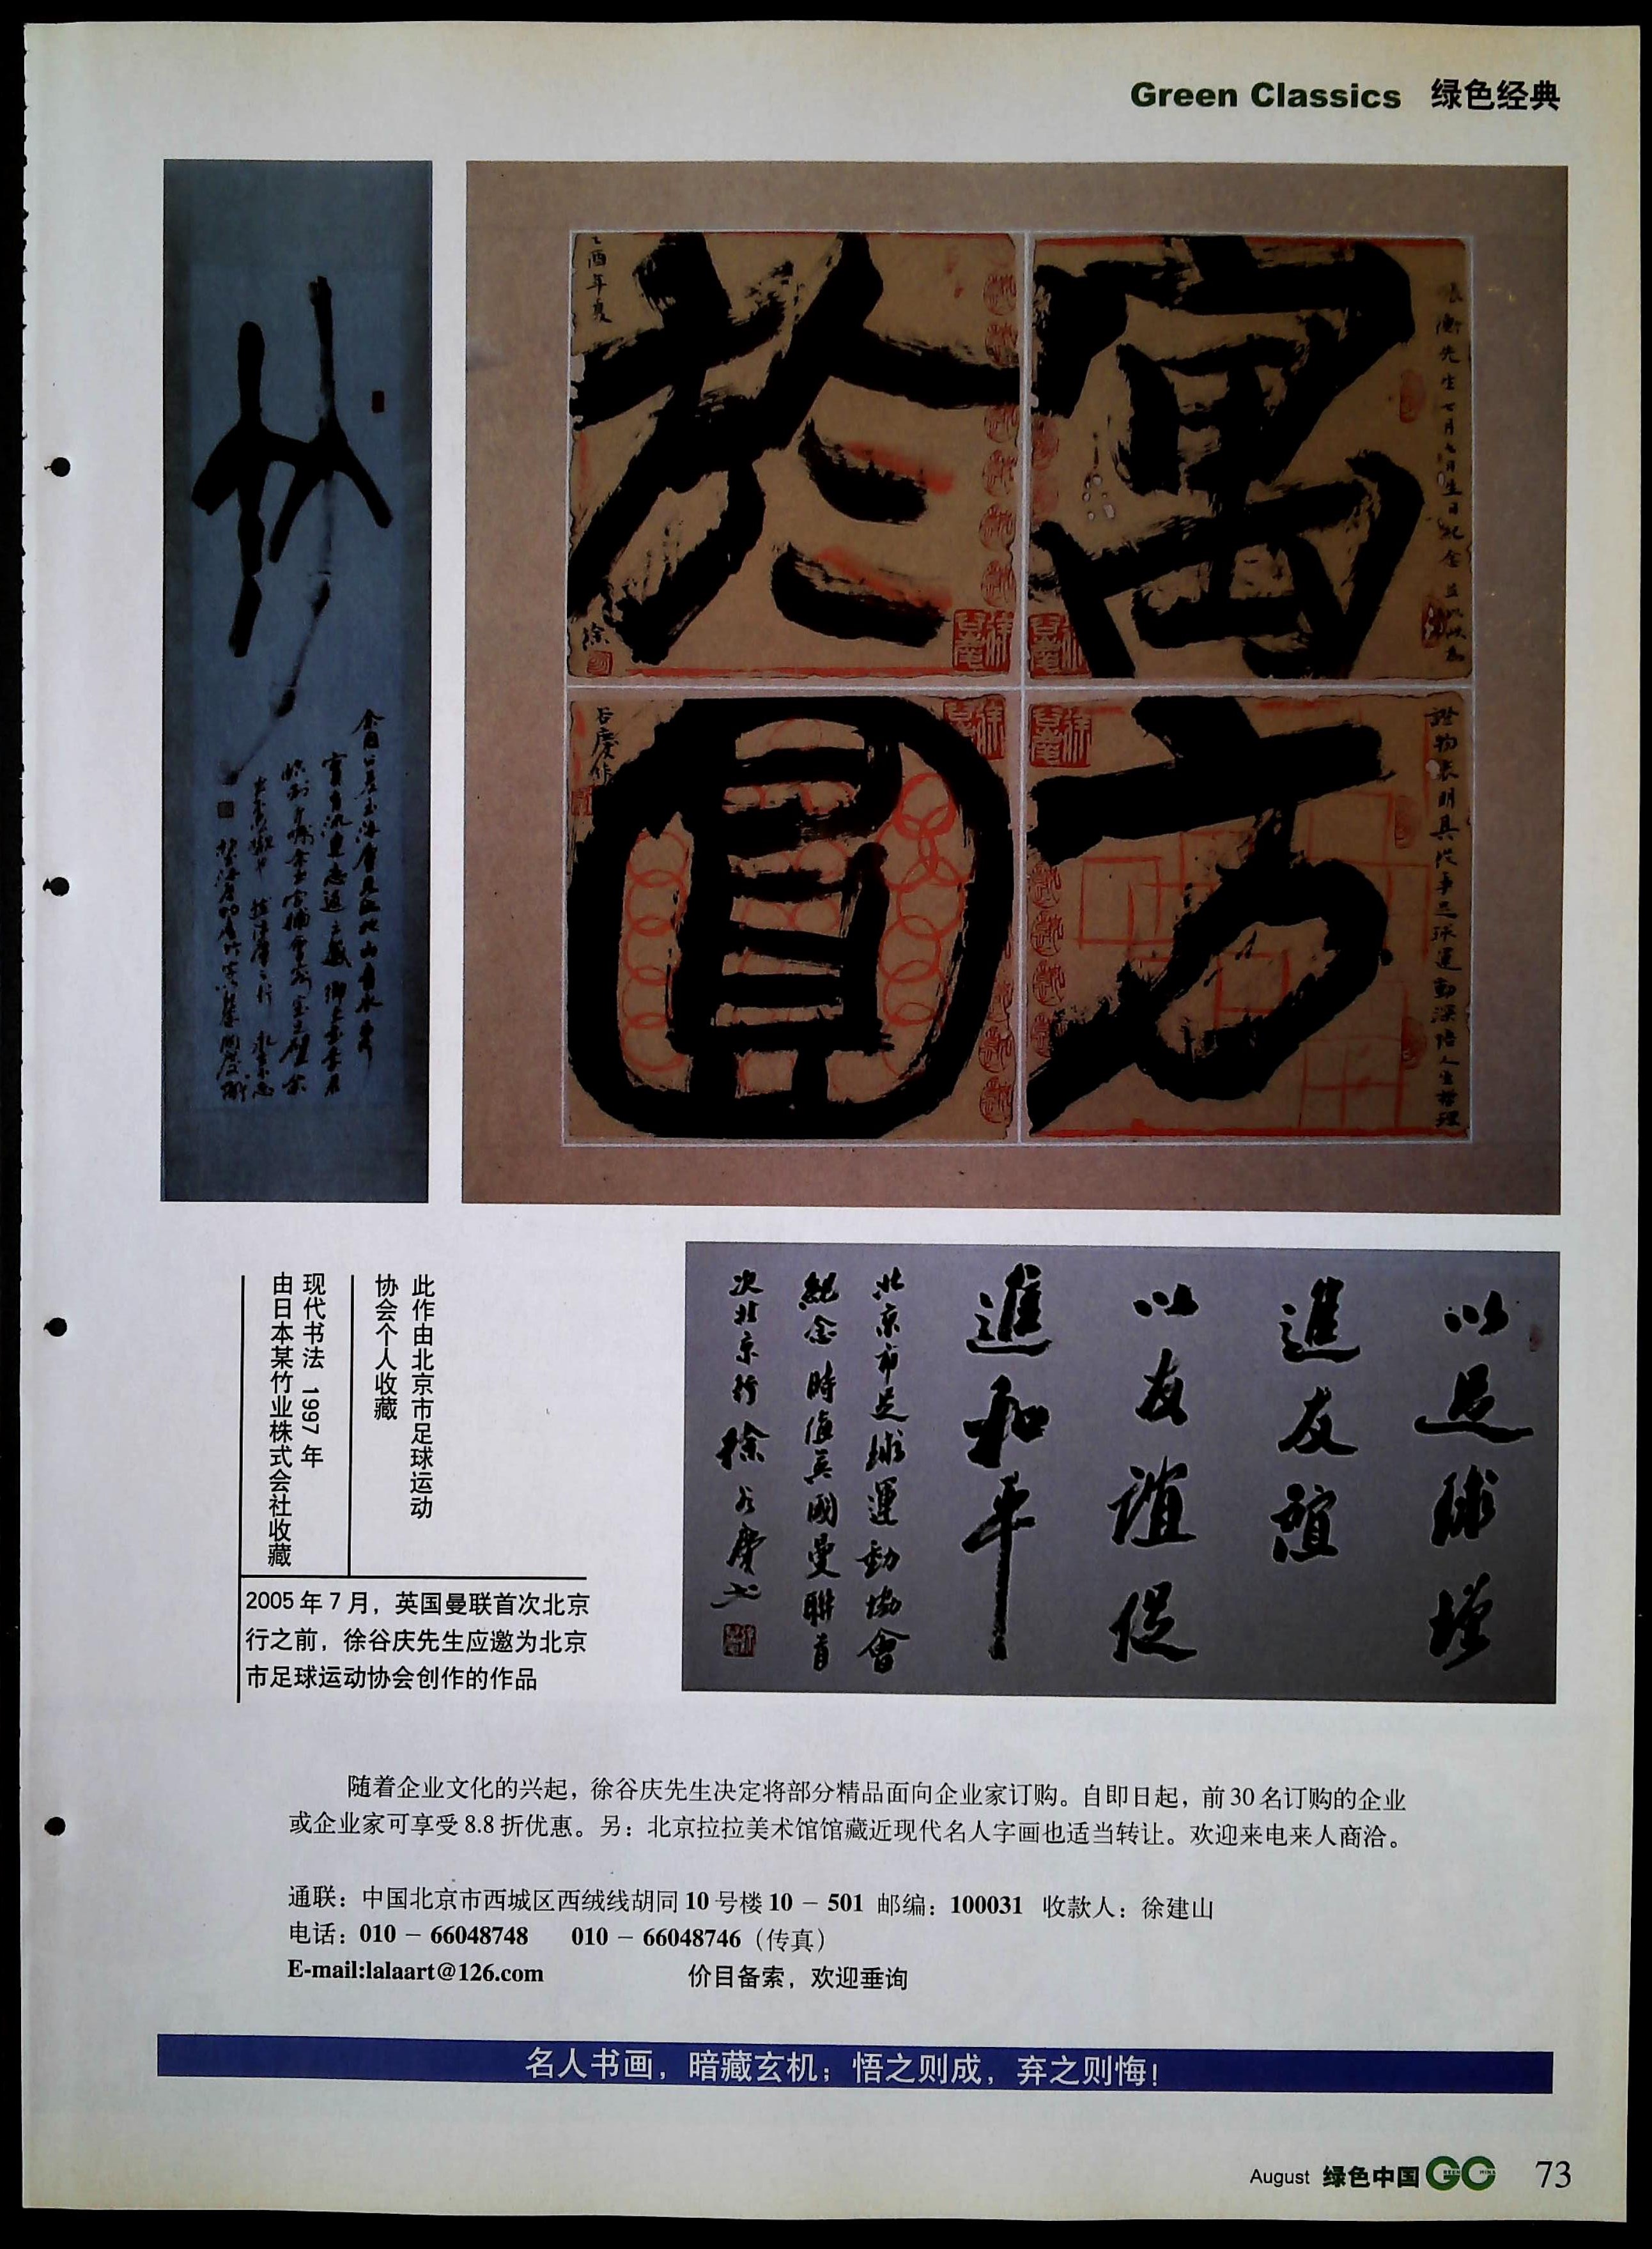 Green Classics 绿色经典
寓方
於圓
乙酉年夏
徐
谷慶作
證物表明其從事足球運動深悟人生哲理
以足球增
進友誼
以友誼促
進和平
北京市足球運動協會
紀念時值英國曼聯首
次北京行徐谷慶书
此作由北京市足球运动
协会个人收藏
现代书法 1997 年
由日本某竹业株式会社收藏
2005 年 7 月，英国曼联首次北京
行之前，徐谷庆先生应邀为北京
市足球运动协会创作的作品
随着企业文化的兴起，徐谷庆先生决定将部分精品面向企业家订购。自即日起，前 30 名订购的企业
或企业家可享受 8.8 折优惠。另：北京拉拉美术馆馆藏近现代名人字画也适当转让。欢迎来电来人商洽。
通联：中国北京市西城区西绒线胡同 10 号楼 10 － 501 邮编：100031 收款人：徐建山
电话：010 － 66048748 010 － 66048746（传真）
E-mail:lalaart@126.com 价目备索，欢迎垂询
名人书画，暗藏玄机；悟之则成，弃之则悔！
August 绿色中国 GC 73